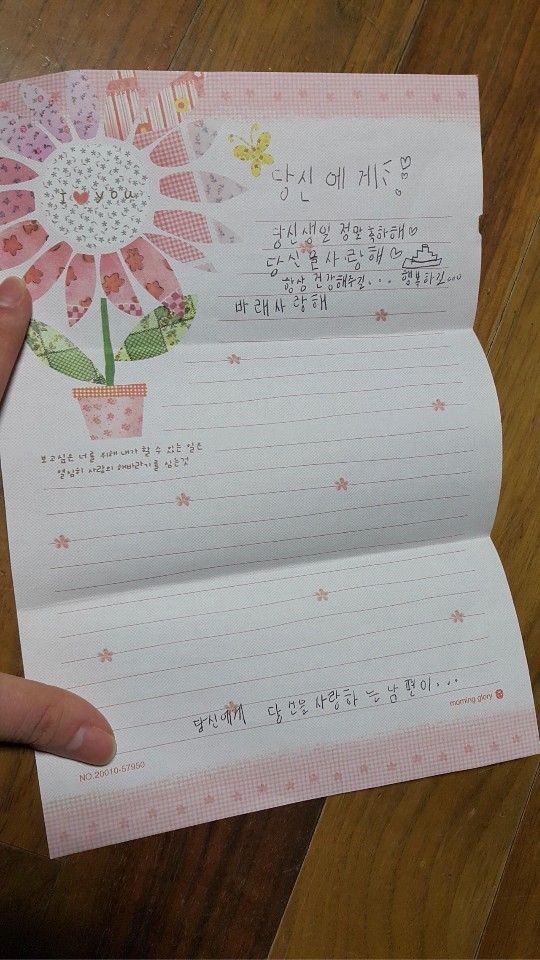 I ♥ you
당신에게!
당신생일 정말 축하해♡
당신을사랑해♡
항상 건강해주길... 행복하길...
바래사랑해
보고싶은 너를 위해 내가 할 수 있는 일은
열심히 사랑의 해바라기를 심는것
당신에게 당신을사랑하는남편이...
morning glory
NO.20010-57950